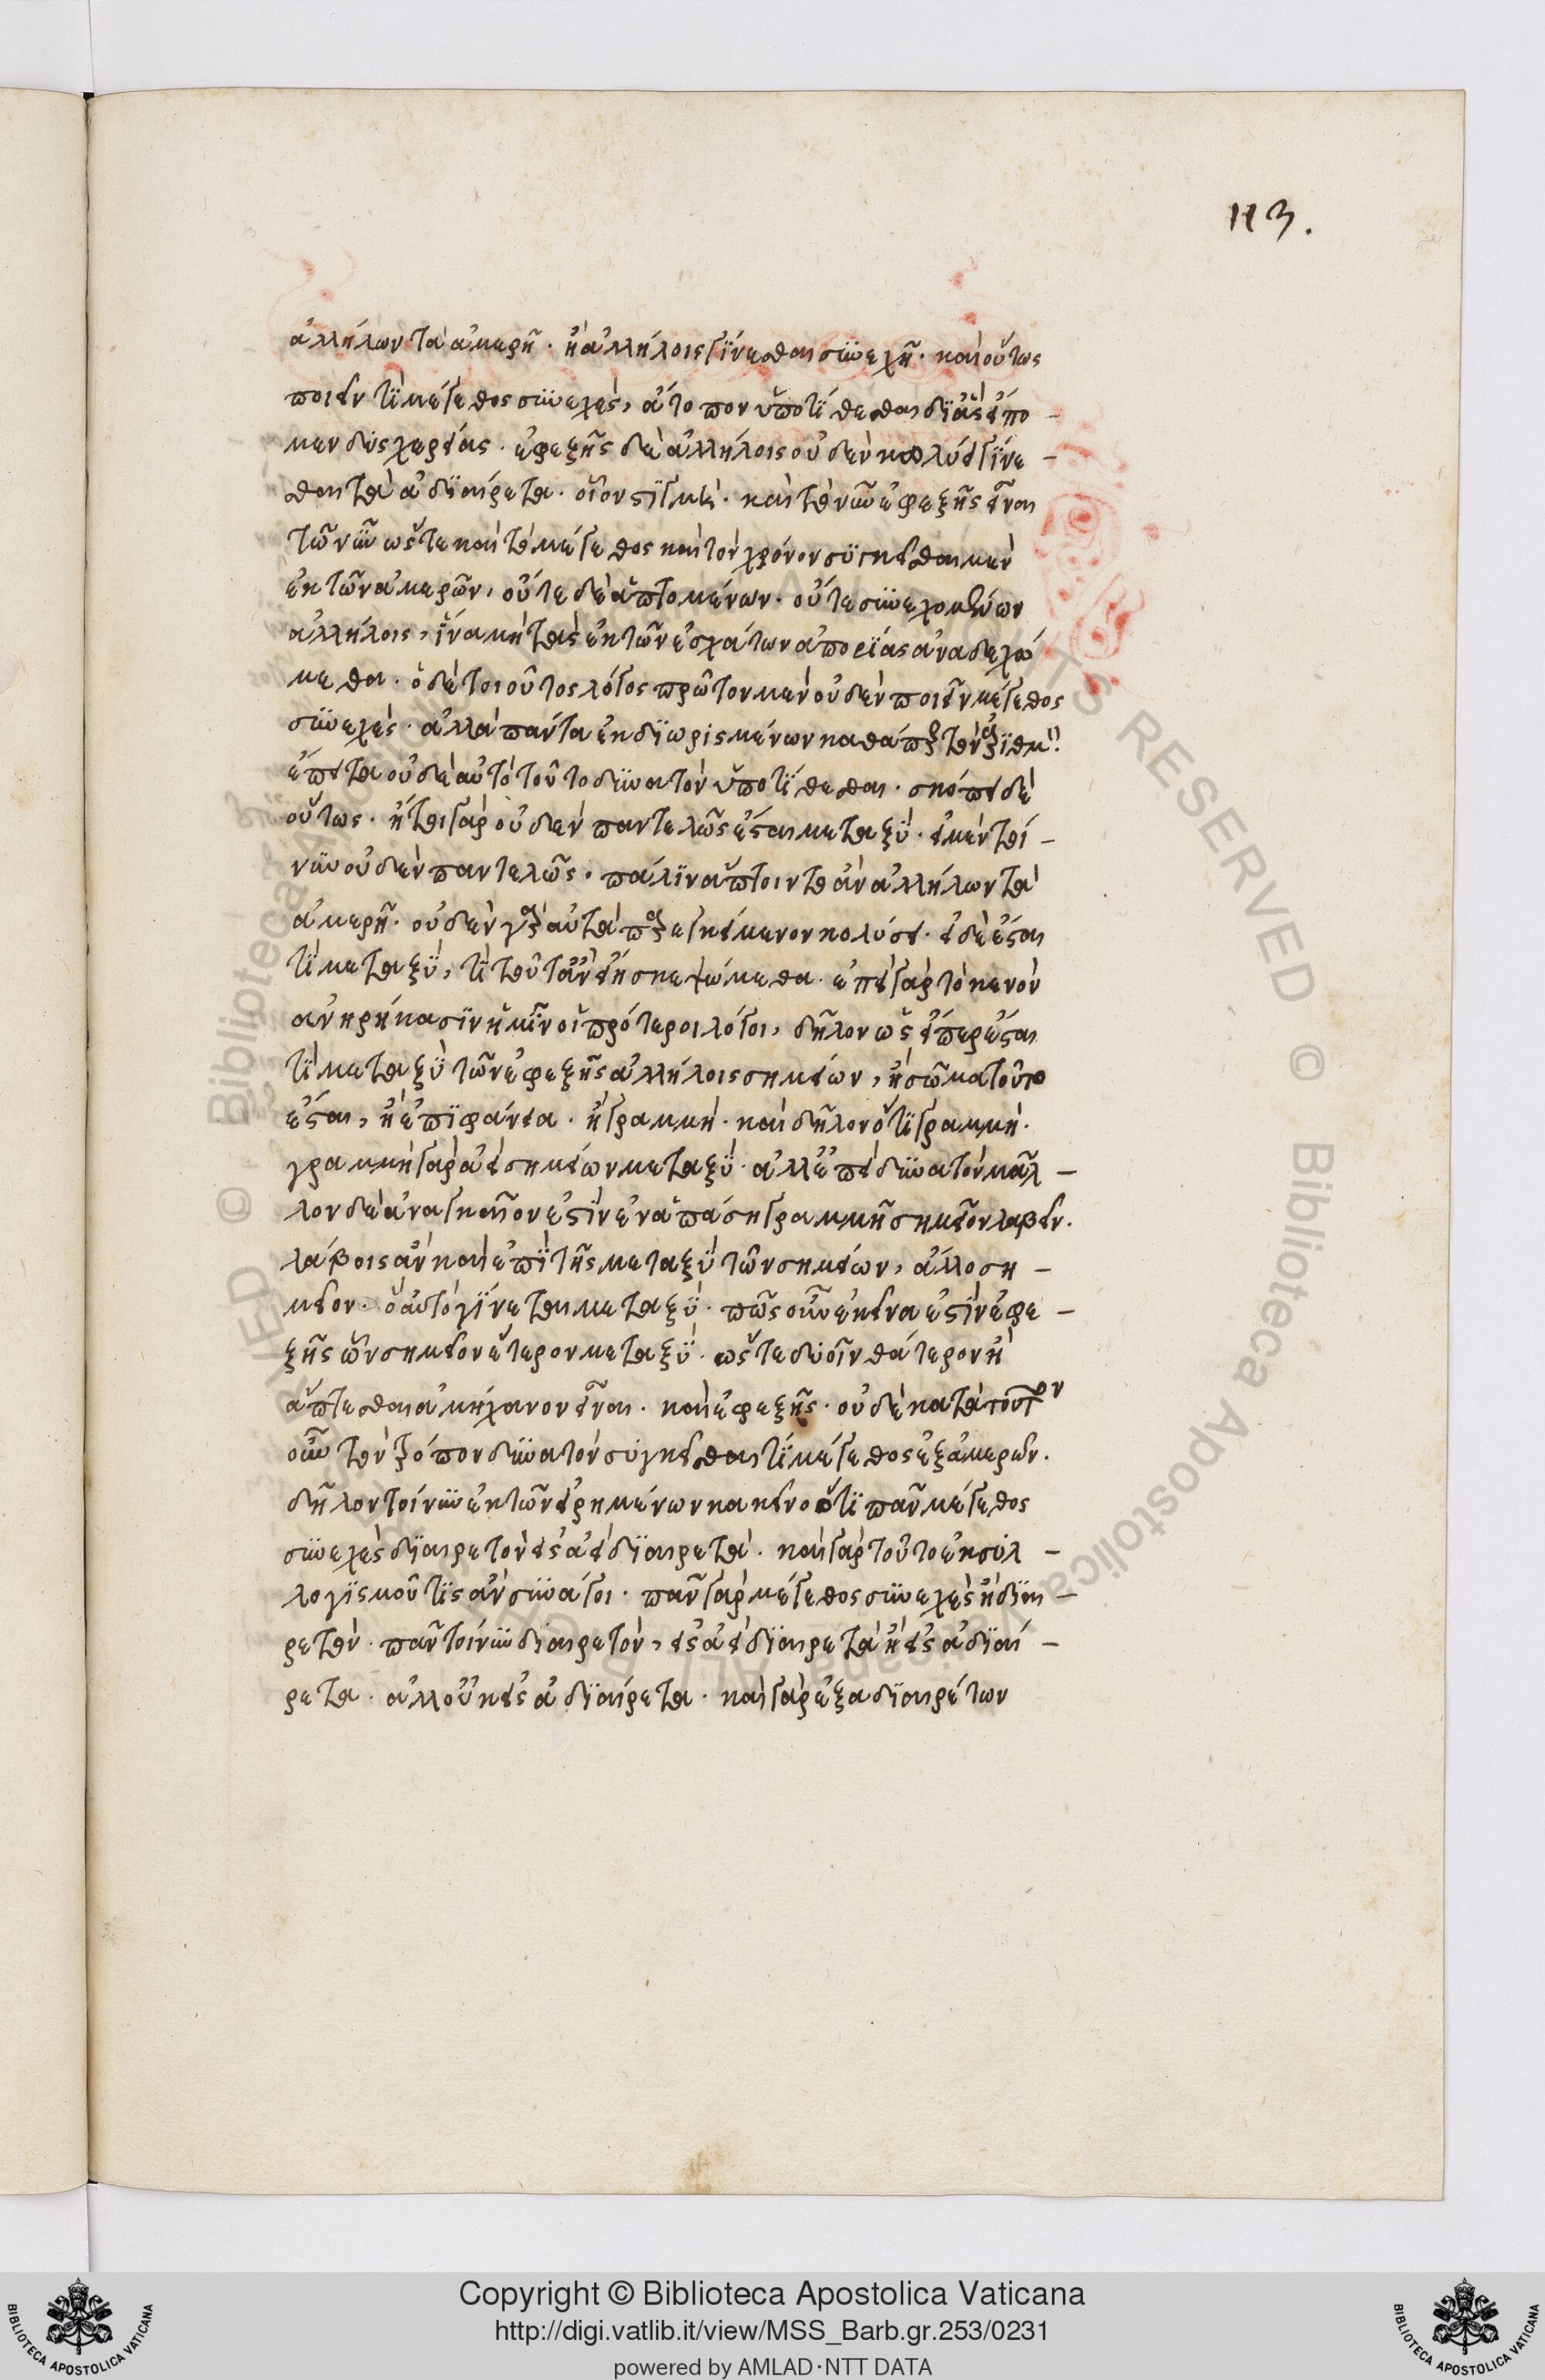 113.
ἀλλήλων τὰ ἀμερῆ· ἢ ἀλλήλοις γίνεσθαι συνεχῆ· καὶ οὕτως
ποιεῖν τὶ μέγεθος συνεχὲς, ἄτοπον ὑποτίθεσθαι δι' ἃς εἴπο-
μεν δυσχερείας· ἐφεξῆς δὲ ἀλλήλοις οὐδὲν κωλύει γίνε-
σθαι τὰ ἀδιαίρετα· οἷον στιγμὴ· καὶ τὸ νῦν ἐφεξῆς εἶναι
τῶ νῦν ὥστε καὶ τὸ μέγεθος καὶ τὸν χρόνον συγκεῖσθαι μὲν
ἐκ τῶν ἀμερῶν, οὔτε δὲ ἁπτομένων· οὔτε συνεχομένων
ἀλλήλοις, ἵνα μὴ τὰς ἐκ τῶν ἐσχάτων ἀπορίας ἀναδεχώ
μεθα· ὁ δὲ τοιοῦτος λόγος πρῶτον μὲν οὐδὲν ποιεῖν μέγεθος
συνεχὲς· ἀλλὰ πάντα ἐκ διωρισμένων καθάπερ τὸν ἀριθμὸν
ἔπειτα οὐδὲ αὐτὸ τοῦτο δυνατὸν ὑποτίθεσθαι· σκόπει δὲ
οὕτως· ἤτοι γὰρ οὐδὲν παντελῶς ἔσται μεταξὺ· εἰ μὲν τοί-
νυν οὐδὲν παντελῶς· πάλιν ἅπτοιντο ἂν ἀλλήλων τὰ
ἀμερῆ· οὐδὲν γὰρ αὐτὰ παρεγκείμενον κολύσει· εἰ δὲ ἔσται
τὶ μεταξὺ, τί τοῦτ' ἂν εἴη σκεψώμεθα· ἐπεὶ γὰρ τὸ κενὸν
ἀνηρήκασιν ἡμῖν οἱ πρότεροι λόγοι, δῆλον ὡς εἴπερ ἔσται
τὶ μεταξὺ τῶν ἐφεξῆς ἀλλήλοις σημείων, ἢ σῶμα τοῦτο
ἔσται, ἢ ἐπιφάνεια· ἢ γραμμὴ· καὶ δῆλον ὅτι γραμμὴ·
γραμμὴ γὰρ ἀεὶ σημείων μεταξὺ· ἀλλ' ἐπεὶ δυνατὸν μᾶλ-
λον δὲ ἀναγκαῖον ἐστὶν ἐν ἁπάση γραμμῆ σημεῖον λαβεῖν.
λάβοις ἂν καὶ ἐπὶ τῆς μεταξὺ τῶν σημείων, ἄλλο ση-
μεῖον· ὃ αὐτὸ γίνεται μεταξὺ· πῶς οὖν ἐκεῖνα ἐστὶν ἐφε-
ξῆς ὧν σημεῖον ἕτερον μεταξὺ· ὥστε δυοῖν θάτερον ἢ
ἅπτεσθαι ἀμήχανον εἶναι· καὶ ἐφεξῆς· οὐδὲ κατὰ τοῦτον
οὖν τὸν τρόπον δυνατὸν συγκεῖσθαι τὶ μέγεθος ἐξ ἀμερῶν.
δῆλον τοίνυν ἐκ τῶν εἰρημένων κακεῖνο ὅτι πᾶν μέγεθος
συνεχὲς διαιρετὸν εἰς ἀεὶ διαιρετὰ· καὶ γὰρ τοῦτο ἐκ συλ-
λογισμοῦ τὶς ἂν συνάγοι· πᾶν γὰρ μέγεθος συνεχὲς ἢ διαι-
ρετὸν· πᾶν τοίνυν διαιρετὸν, εἰς ἀεὶ διαιρετὰ ἢ εἰς ἀδιαί-
ρετα· ἀλλ' οὐκ εἰς ἀδιαίρετα· καὶ γὰρ ἐξ ἀδιαιρέτων
Copyright © Biblioteca Apostolica Vaticana
http://digi.vatlib.it/view/MSS_Barb.gr.253/0231
powered by AMLAD·NTT DATA